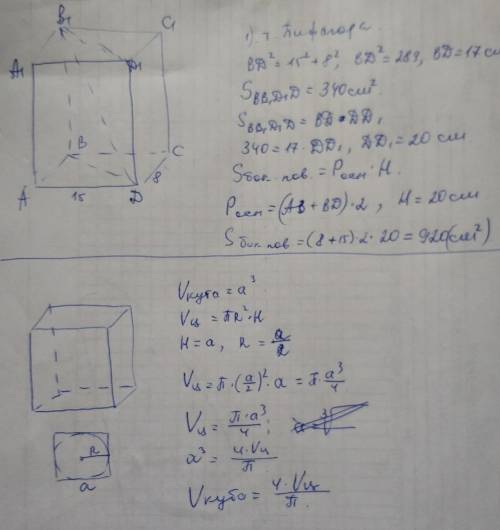 B₁
C₁
A₁
D₁
B
C
A
15
D
8
1) т. Пифагора.
BD² = 15² + 8², BD² = 289, BD = 17 см
S BB₁D₁D = 340 см²
S BB₁D₁D = BD • DD₁
340 = 17 · DD₁, DD₁ = 20 см
S бок. пов. = P осн · H.
P осн = (AB + BD) · 2, H = 20 см
S бок пов = (8 + 15) · 2 · 20 = 920 (см²)
V куба = a³
V ц = πR² · H
H = a, R = a/2
V ц = π · (a/2)² · a = π · a³/4
V ц = π · a³/4;
a³ = 4 · V ц/π
V куба = 4 · V ц/π.
R
a